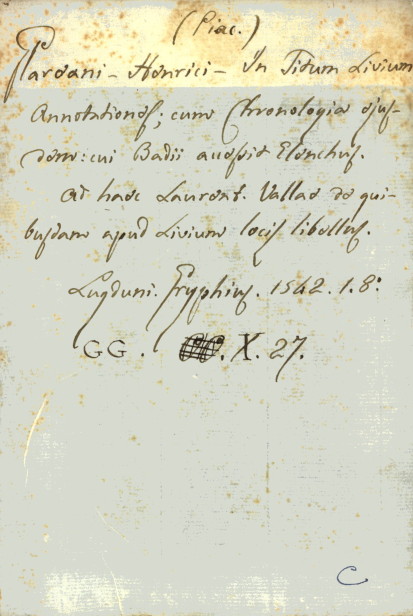 (Piac.)
Glareani - Henrici - In Titum Livium
Annotationes; cum Chronologia ejus-
dem: cui Badii accessit Elenchus.
Ad haec Laurent. Vallae de qui-
busdam apud Livium locis libellus.
Lugduni. Gryphius. 1542. 1. 8°
GG. X. 27.
C